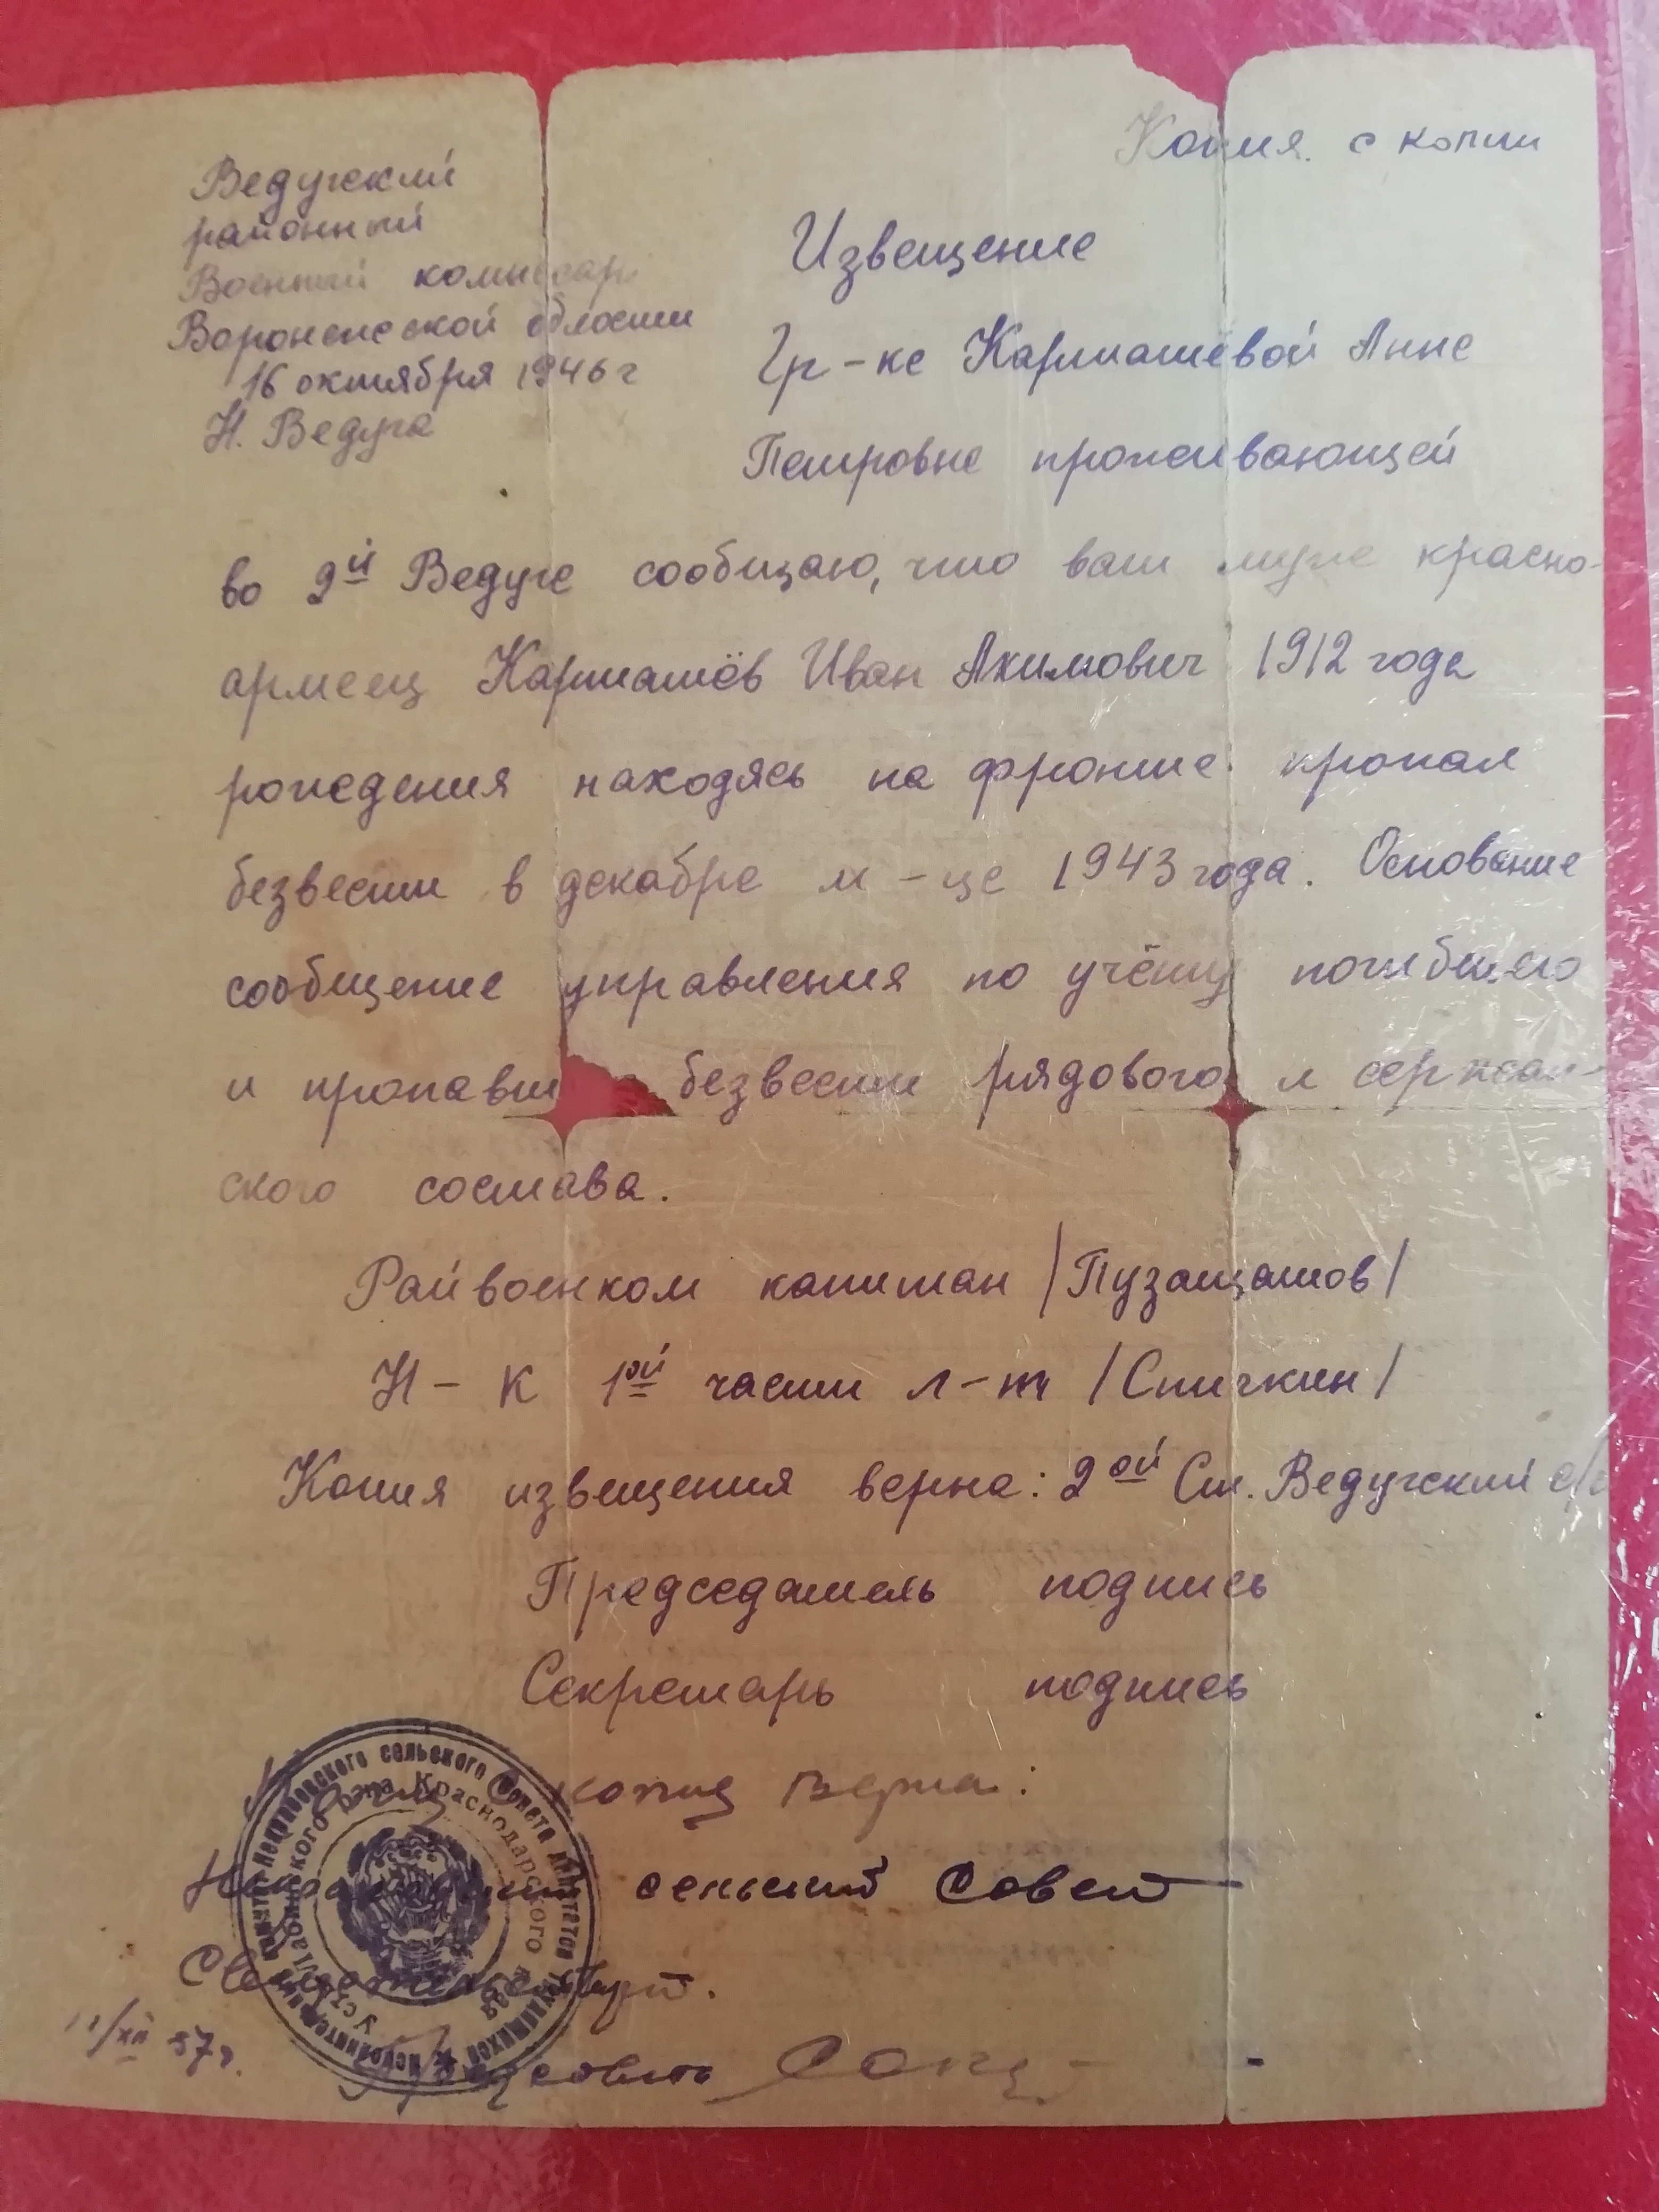 Копия с копии
Ведугский
районный
Военный комиссар
Воронежской области
16 октября 1946 г
Н. Ведуга
Извещение
Гр-ке Карташёвой Анне
Петровне проживающей
во 2й Ведуге сообщаю, что ваш муж красно-
армеец Карташёв Иван Акимович 1912 года
рождения находясь на фронте пропал
безвести в декабре м-це 1943 года. Основание
сообщение управления по учёту погибшего
и пропавш безвести рядового и сержан-
ского состава.
Райвоенком капитан /Пузащатов/
Н-к 1ой части л-т /Спичкин/
Копия извещения верна: 2ой Ст. Ведугский с/с
Председатель подпись
Секретарь подпись
с копии верна:
сельский Совет
11/XII 57 г.
сельского Совета депутатов трудящихся
района Краснодарского края